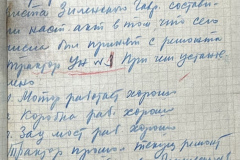 листа Зиленского Гавр. составил
ли наст. акт в том что сего
числа был принят с ремонта
трактор Ун №1 При чем установ
лено
1. Мотор работает хорошо
Коробка раб. хорошо
Зад мост раб хорошо
Трактор прошел текущ ремонт